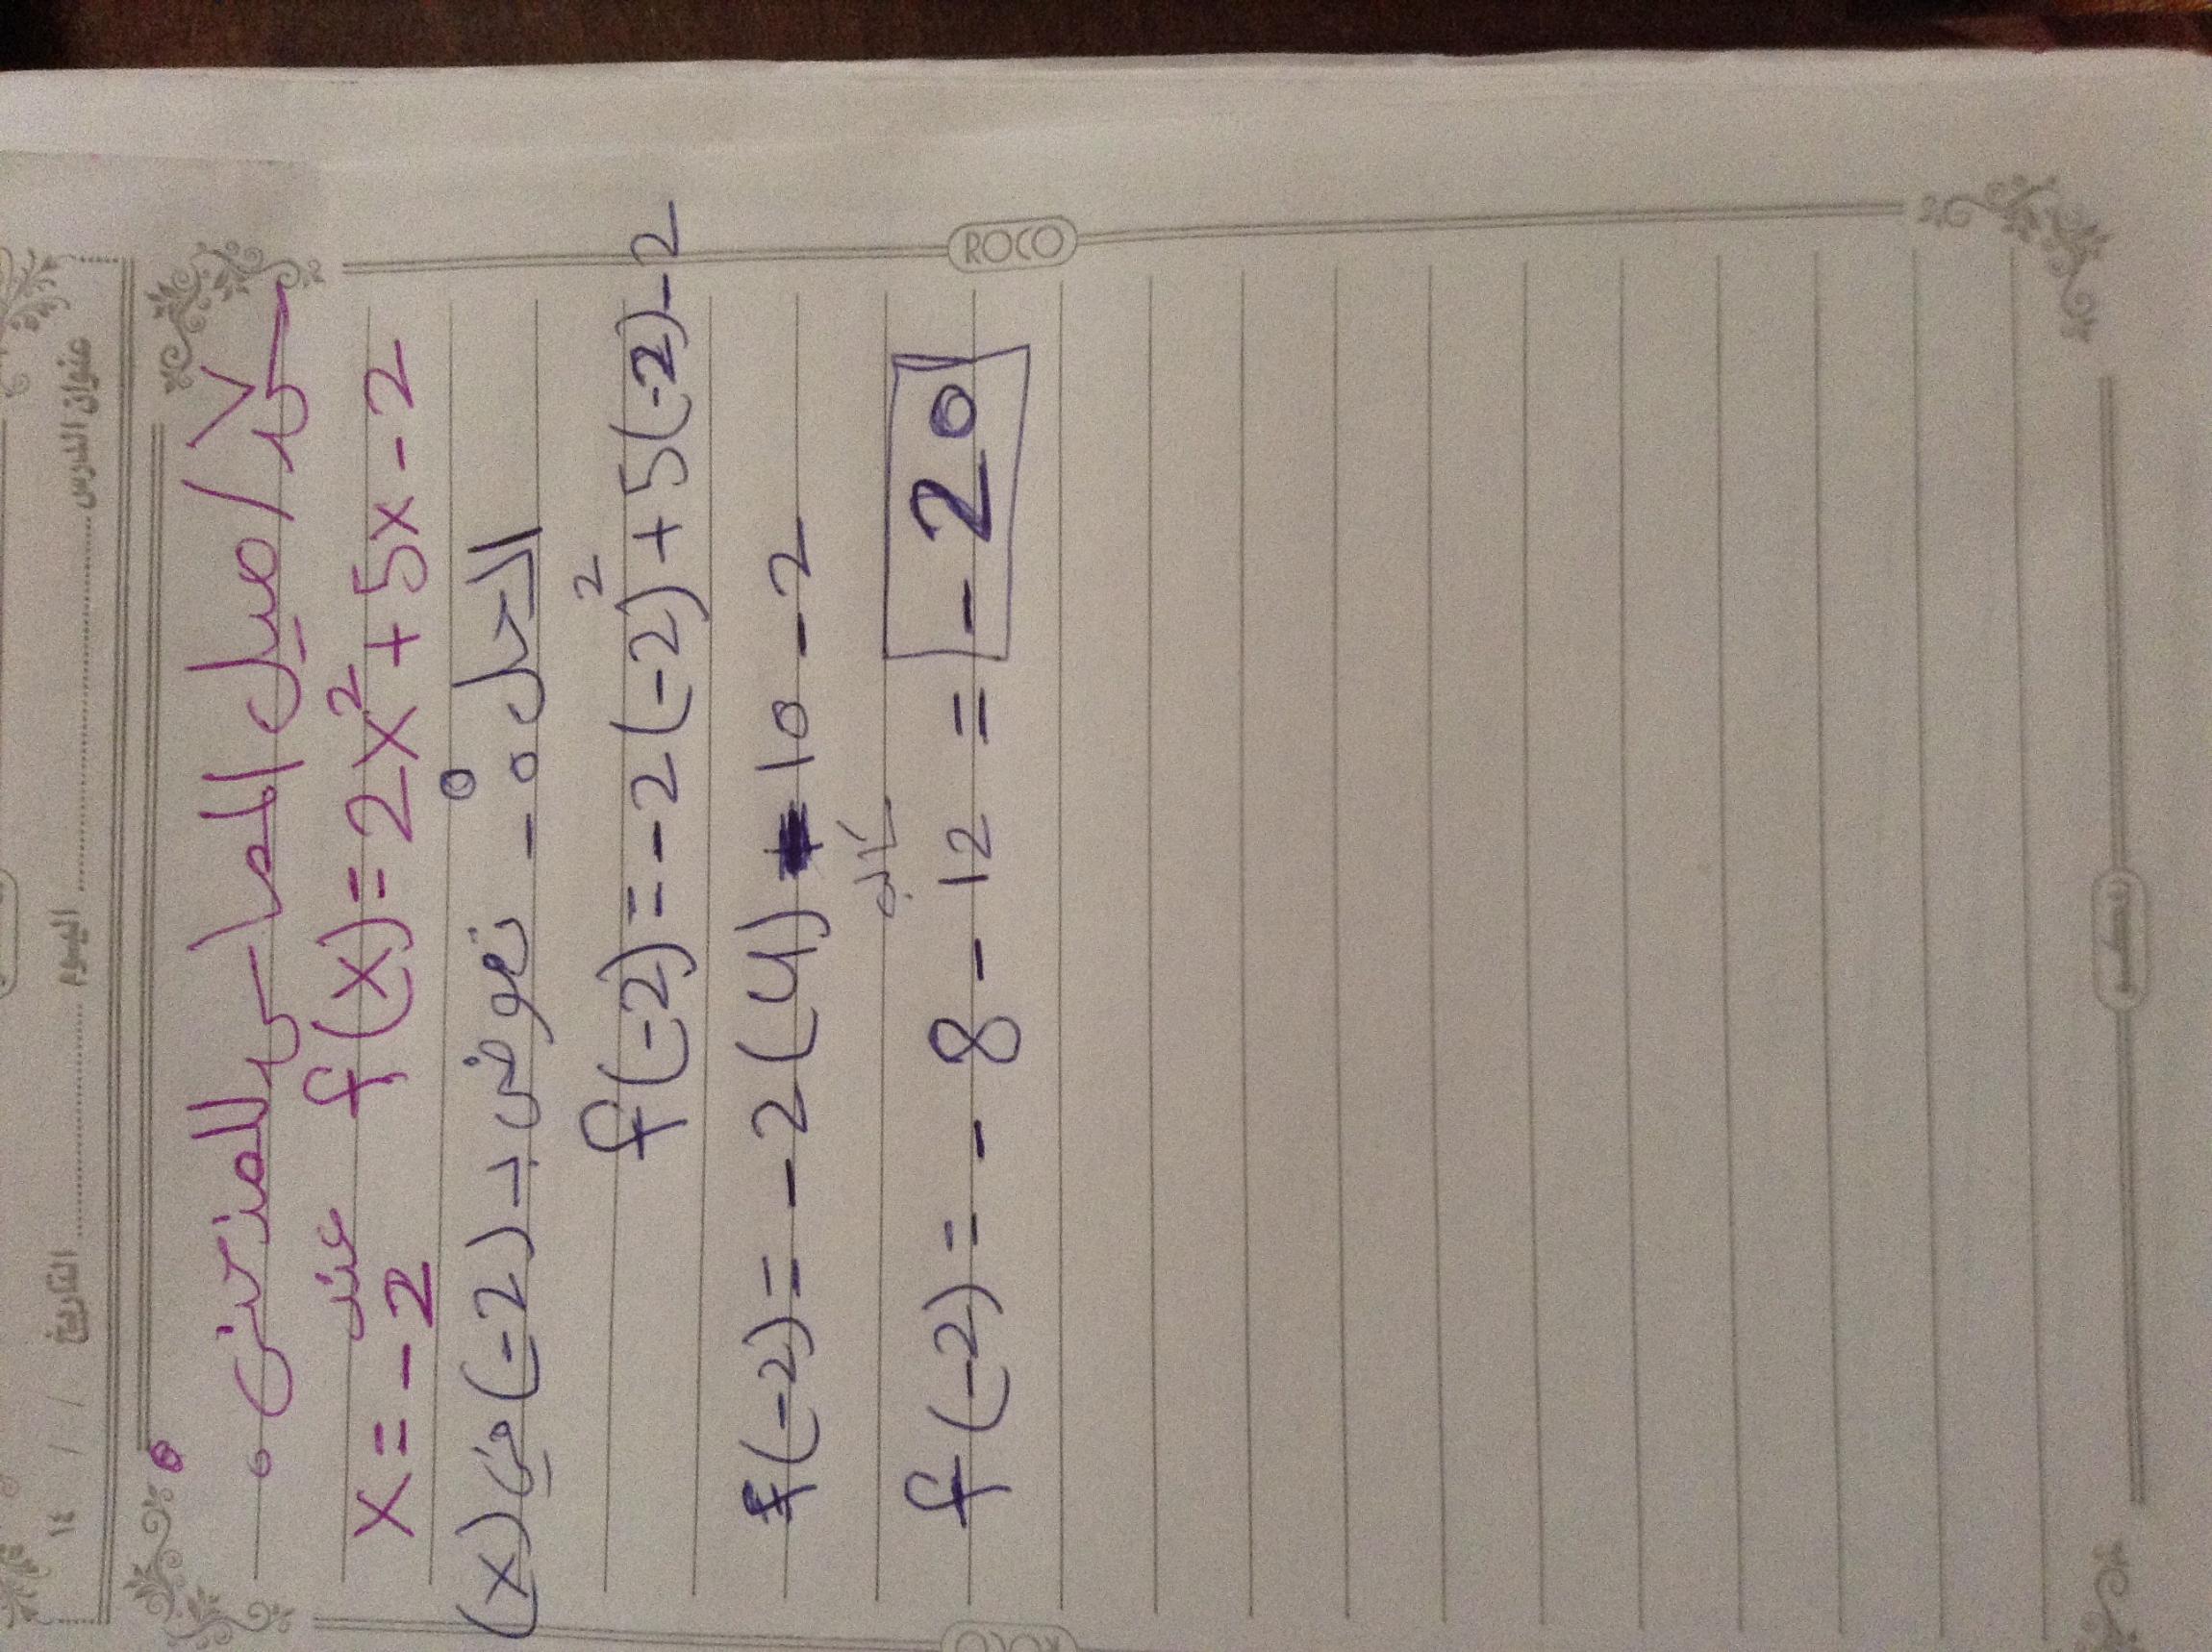 عنوان الدرس اليوم التاريخ / / ١٤
ROCO
س٧ / ميل المماس للمنحنى
f(x) = 2x² + 5x - 2
عند x = -2
الحل :- نعوض بـ (-2) في (x)
f(-2) = -2(-2)² + 5(-2) - 2
f(-2) = -2(4) - 10 - 2
سالب
f(-2) = - 8 - 12 = - 20